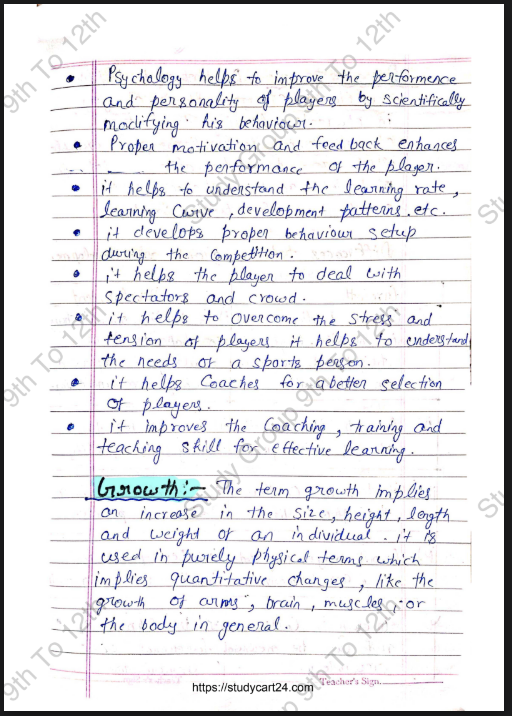 • Psychalogy helps to improve the performence
and personality of players by scientifically
modifying his behaviour.
• Proper motivation and feed back enhances
the performance of the player.
• it helps to understand the learning rate,
learning Curve, development patterns. etc.
• it develops proper behaviour setup
during the competition.
• it helps the player to deal with
spectators and crowd.
• it helps to overcome the stress and
tension of players it helps to understand
the needs of a sports person.
• it helps Coaches for a better selection
of players.
• it improves the Coaching, training and
teaching skill for effective learning.
Growth:- The term growth implies
an increase in the size, height, length
and weight of an individual. it is
used in purely physical terms which
implies quantitative changes, like the
growth of arms, brain, muscles, or
the body in general.
Teacher's Sign.
https://studycart24.com
Study Group 9th To 12th